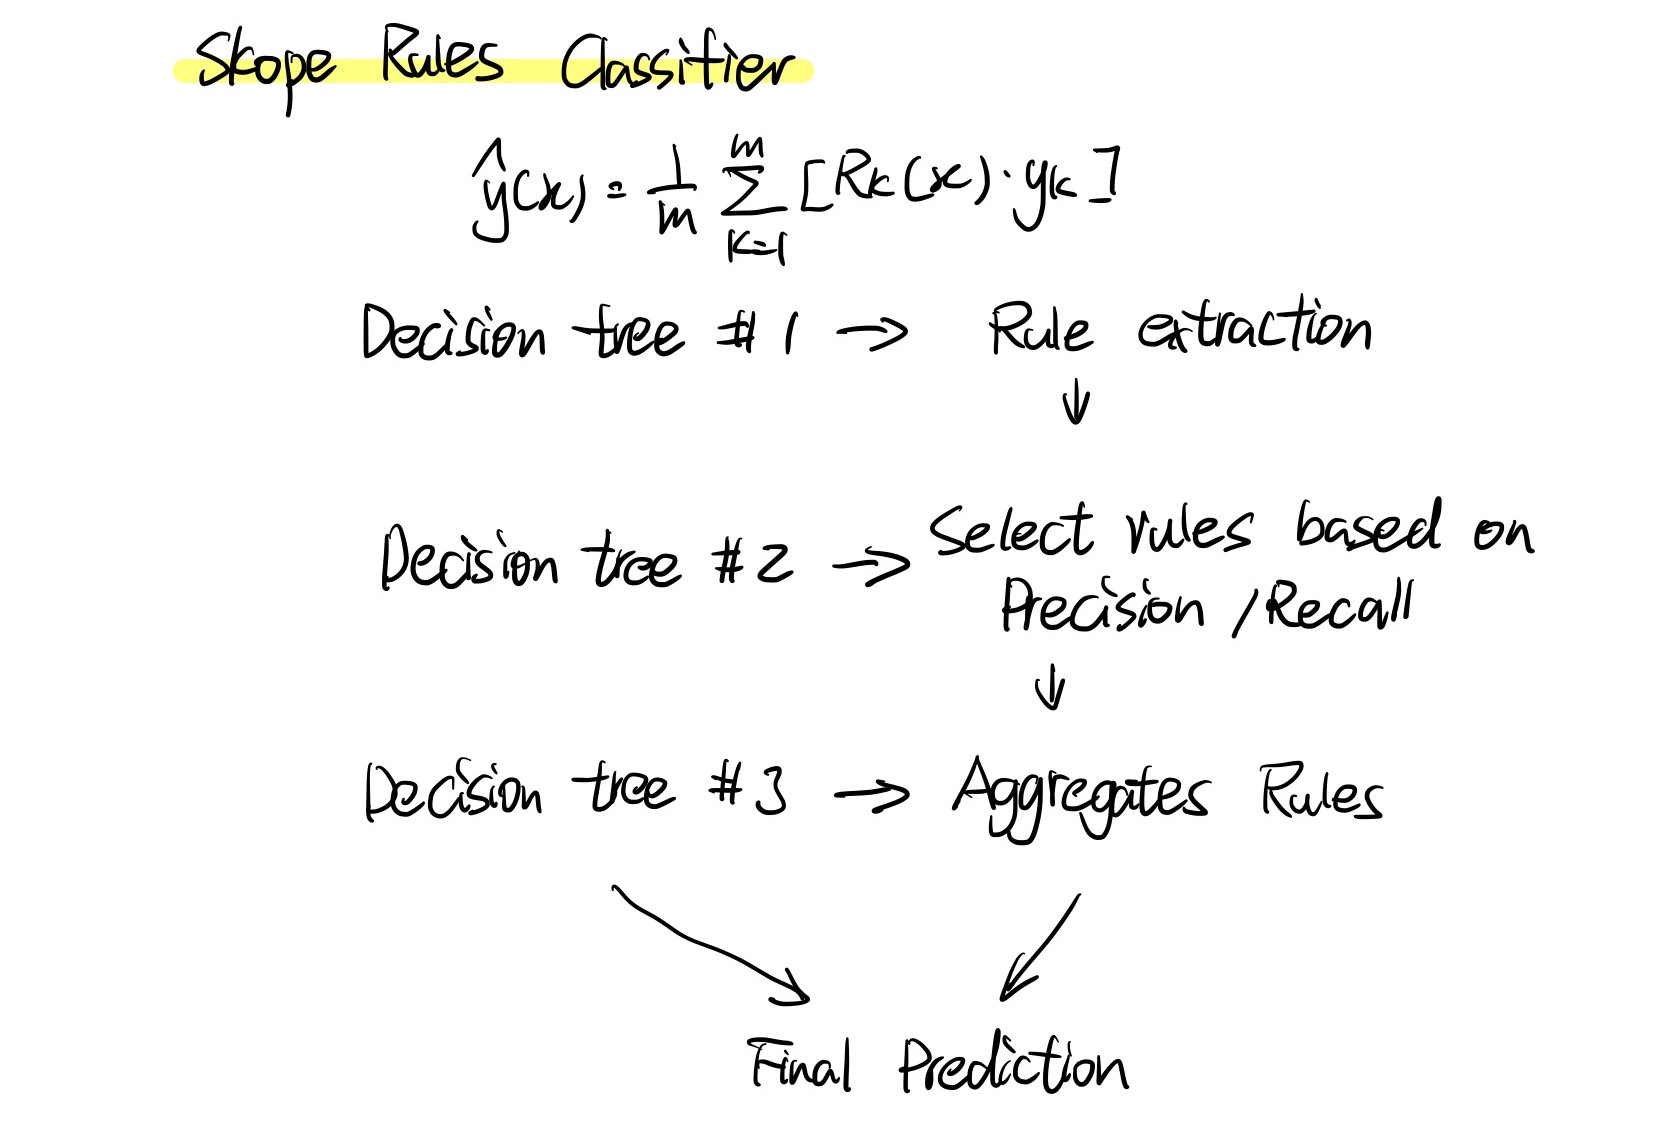 Skope Rules Classifier
ŷ(x) = 1/m ∑_{k=1}^{m} [Rk(x)·yk]
Decision tree #1 → Rule extraction
↓
Decision tree #2 → Select rules based on
Precision /Recall
↓
Decision tree #3 → Aggregates Rules
Final Prediction